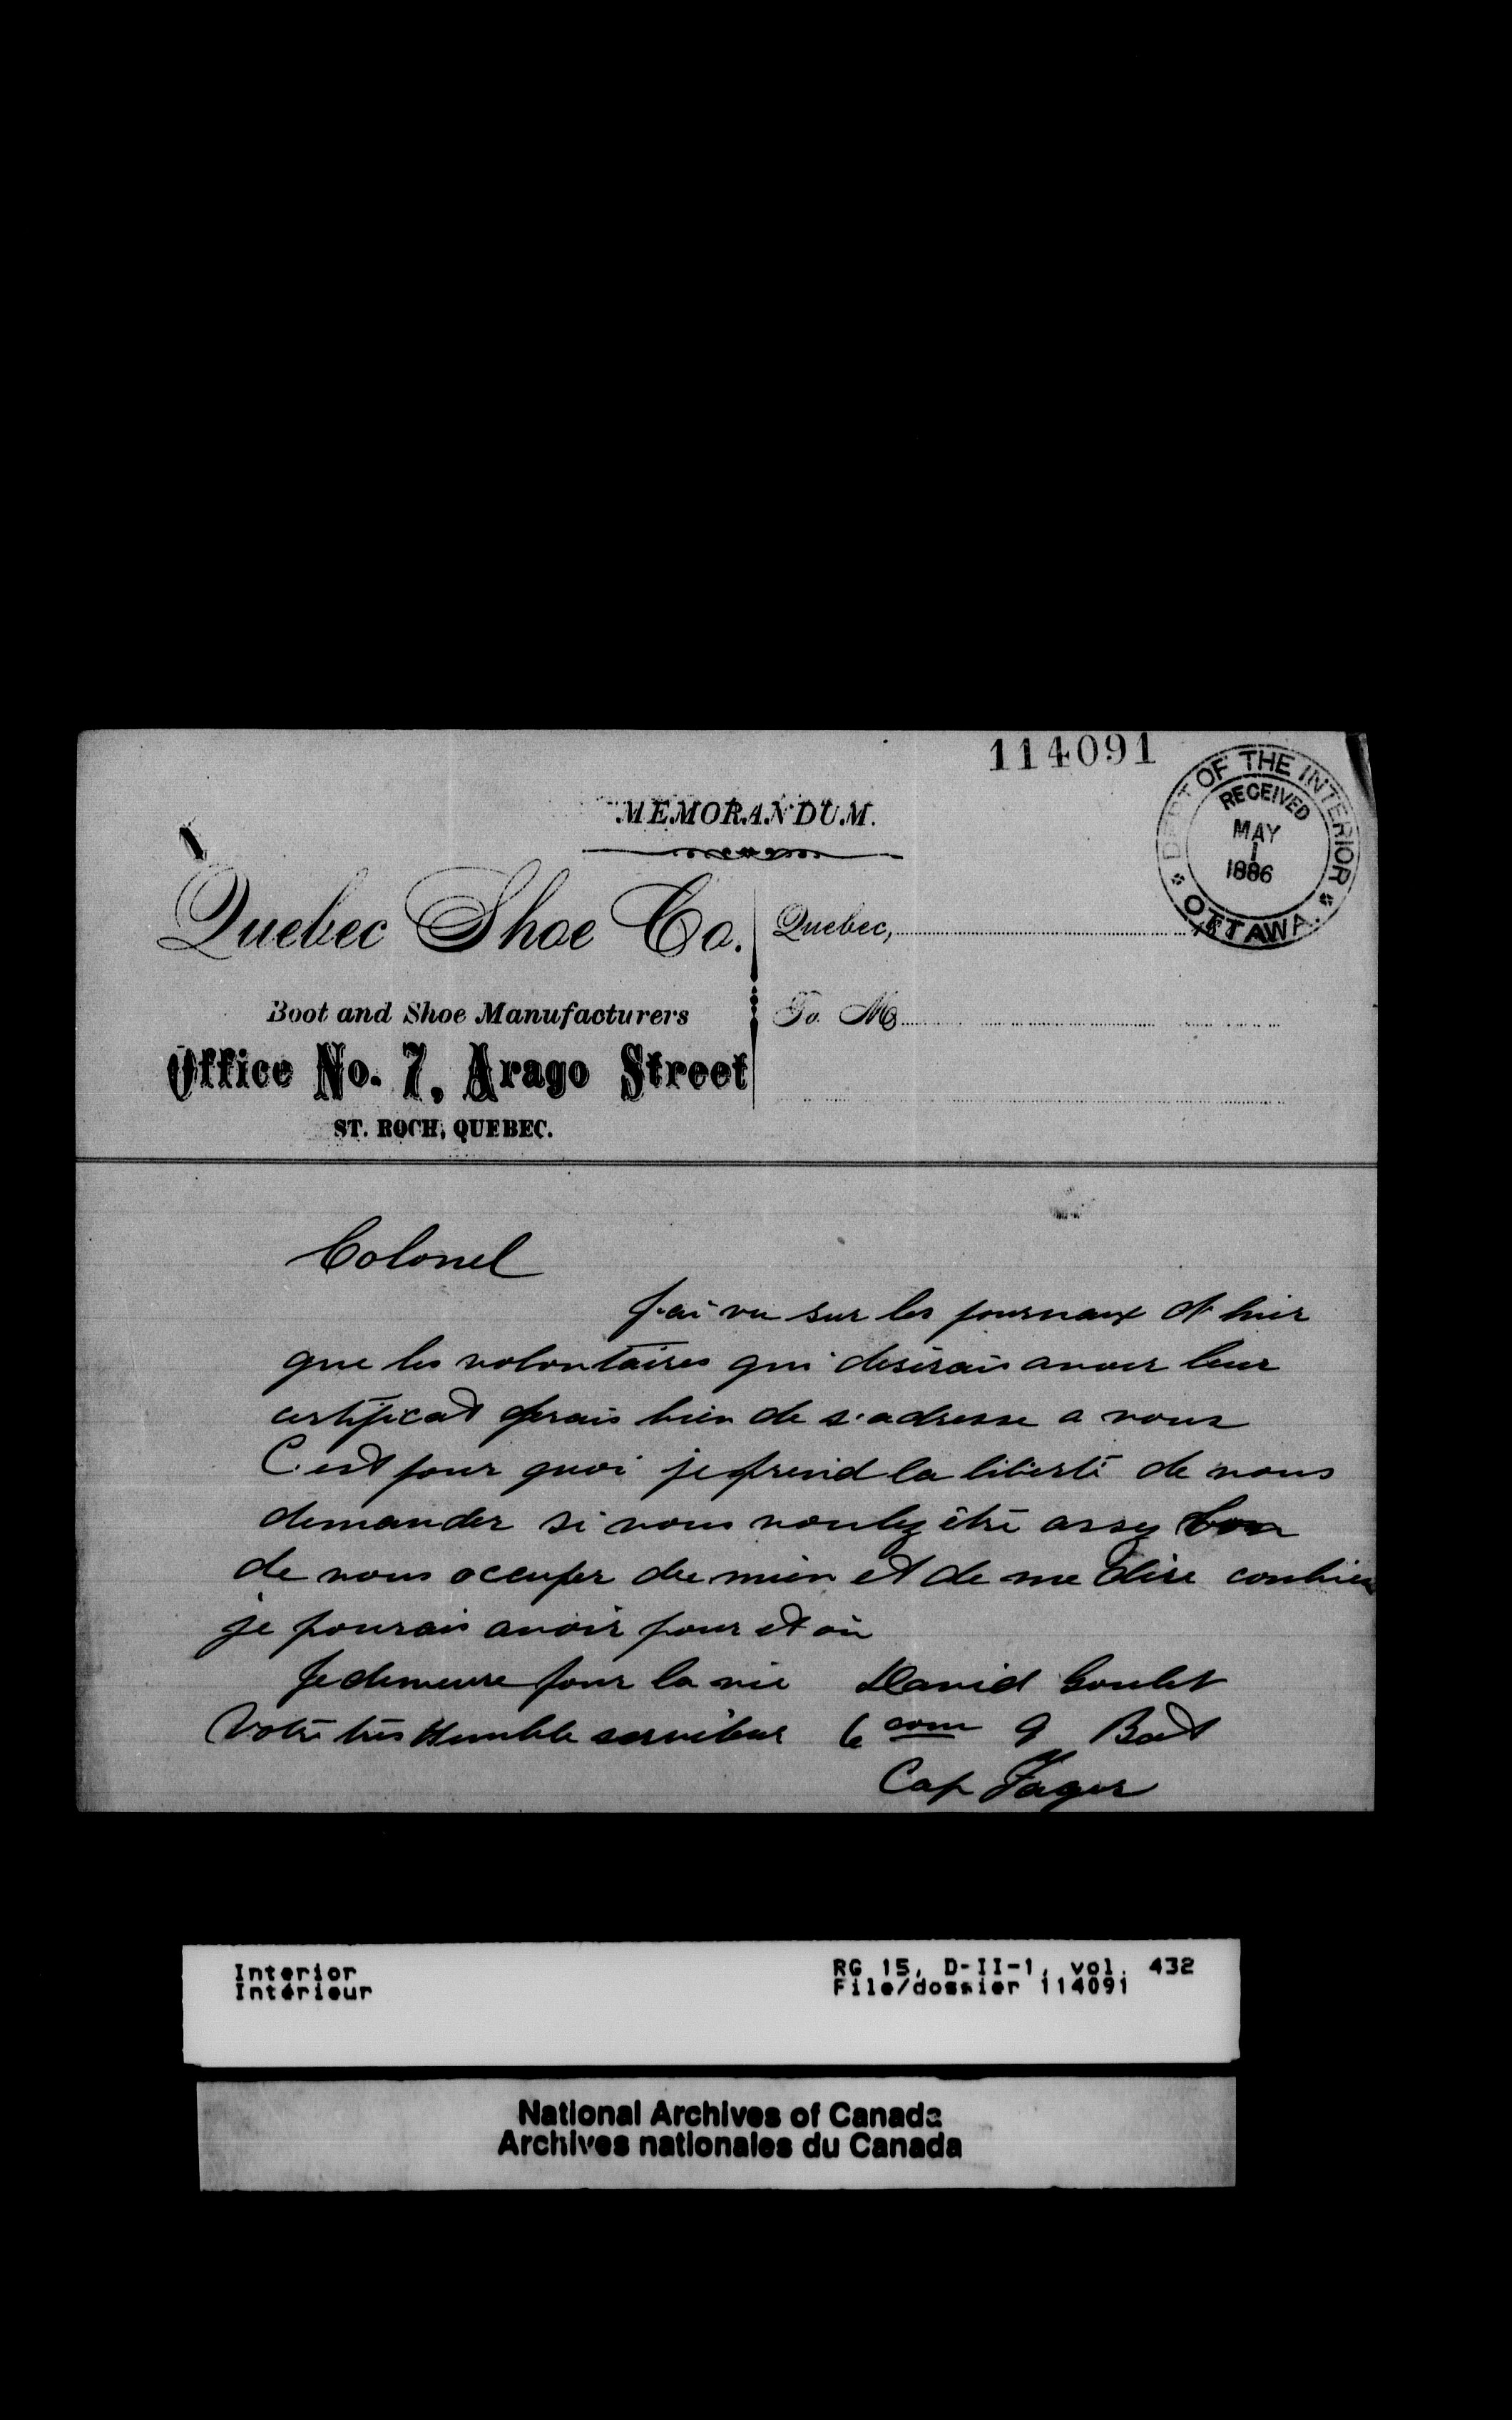 114091
DEPT OF THE INTERIOR
RECEIVED
MAY
1
1886
OTTAWA
MEMORANDUM.
Quebec Shoe Co.
Quebec,
Boot and Shoe Manufacturers
To M
Office No. 7, Arago Street
ST. ROCH, QUEBEC.
Colonel
J'ai vu sur les journaux d'hier
que les volontaires qui desirais avoir leur
certificat ferais bien de s'adresse a vous
C'est pour quoi je prend la liberté de vous
demander si vous voulez être assez bon
de vous occuper du mien et de me dire combien
je pourais avoir pour et où
Je demeure pour la vie David Goulet
Votre très Humble serviteur 6 com 9 Bat
Cap Fages
Interior
Intérieur
RG 15, D-II-1, vol. 432
File/dossier 114091
National Archives of Canada
Archives nationales du Canada